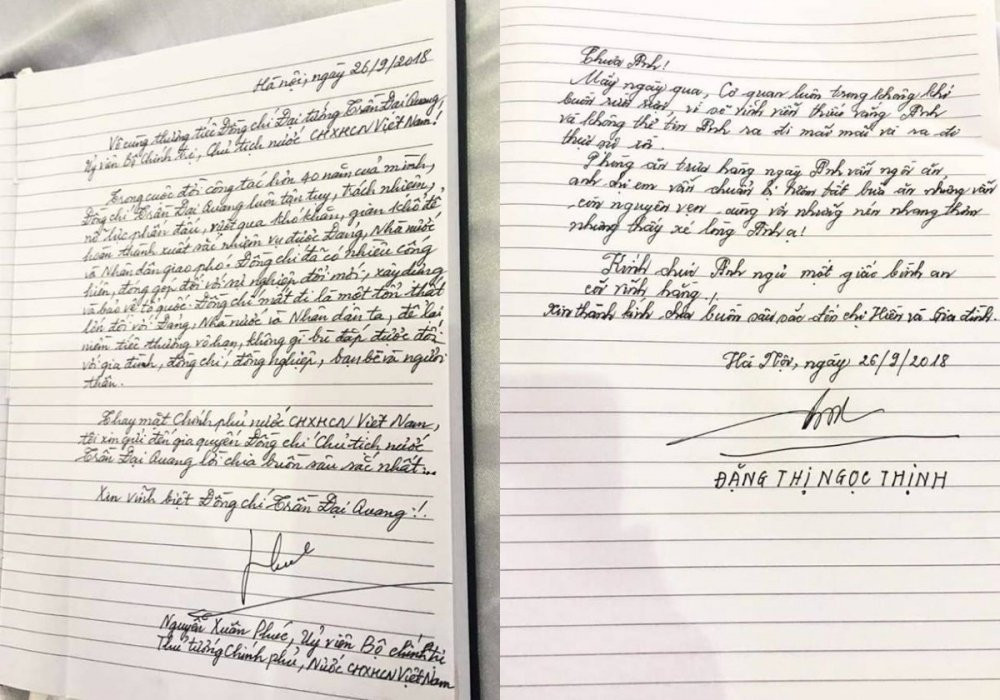 Hà nội, ngày 26/9/2018
Vô cùng thương tiếc Đồng chí Đại tướng Trần Đại Quang,
Uỷ viên Bộ Chính trị, Chủ tịch nước CHXHCN Việt Nam!
Trong cuộc đời công tác hơn 40 năm của mình,
Đồng chí Trần Đại Quang luôn tận tuỵ, trách nhiệm,
nỗ lực phấn đấu, vượt qua khó khăn, gian khổ để
hoàn thành xuất sắc nhiệm vụ được Đảng, Nhà nước
và Nhân dân giao phó. Đồng chí đã có nhiều cống
hiến, đóng góp đối với sự nghiệp đổi mới, xây dựng
và bảo vệ tổ quốc. Đồng chí mất đi là một tổn thất
lớn đối với Đảng, Nhà nước và Nhân dân ta, để lại
niềm tiếc thương vô hạn, không gì bù đắp được đối
với gia đình, đồng chí, đồng nghiệp, bạn bè và người
thân.
Thay mặt Chính phủ nước CHXHCN Việt Nam,
tôi xin gửi đến gia quyến Đồng chí Chủ tịch nước
Trần Đại Quang lời chia buồn sâu sắc nhất...
Xin vĩnh biệt Đồng chí Trần Đại Quang!
Nguyễn Xuân Phúc, Uỷ viên Bộ chính trị
Thủ tướng Chính phủ, Nước CHXHCN Việt Nam
Thưa Anh!
Mấy ngày qua, Cơ quan luôn trong không khí
buồn rười rượi, vì sẽ vĩnh viễn thiếu vắng Anh
và không thể tin Anh ra đi mãi mãi và ra đi
thực sự rồi.
Phòng ăn trưa hàng ngày Anh vẫn ngồi ăn,
anh chị em vẫn chuẩn bị tươm tất bữa ăn nhưng vẫn
còn nguyên vẹn cùng với những nén nhang thơm
nhưng thấy xé lòng Anh ạ!
Kính chúc Anh ngủ một giấc bình an
cõi vĩnh hằng!
Xin thành kính chia buồn sâu sắc đến chị Hiền và Gia đình.
Hà Nội, ngày 26/9/2018
ĐẶNG THỊ NGỌC THỊNH